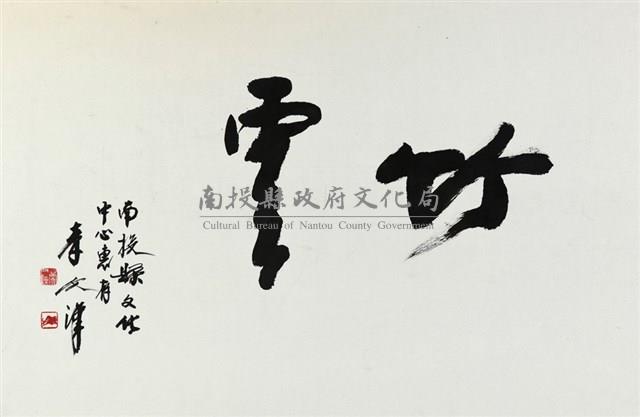 雲
南投縣文化
中心惠存
李文漢
南投縣政府文化局
Cultural Bureau of Nantou County Government